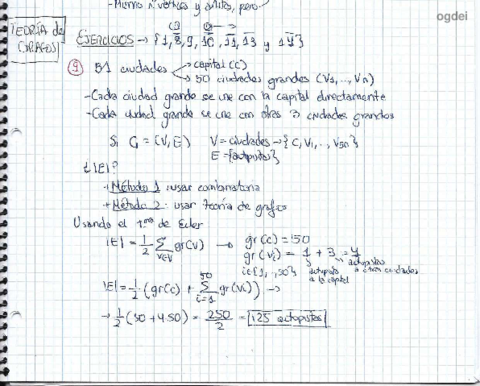 - Mismo nº vértices y aristas, pero
ogdei
TEORÍA de GRAFOS
EJERCICIOS → {1, 8, 9, 10, 11, 13 y 14}
9 51 ciudades
capital (c)
50 ciudades grandes (V1, .., Vn)
- Cada ciudad grande se une con la capital directamente
- Cada ciudad grande se une con otras 3 ciudades grandes
Si G = (V, E) V = ciudades → {C, V1, .., V50}
E = {autopistas}
¿|E|?
+ Método 1: usar combinatoria
+ Método 2: usar teoría de grafos
Usando el de Euler
|E| = 1/2 Σ gr(v) → gr(c) = 50
v∈V
gr(Vi) = 1 + 3 = 4
i∈{1, .., 50} autopista a la capital autopistas a otras ciudades
|E| = 1/2 (gr(c) + Σ gr(Vi)) →
50
i=1
→ 1/2 (50 + 4·50) = 250/2 = 125 autopistas